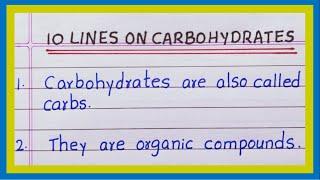 10 LINES ON CARBOHYDRATES
1. Carbohydrates are also called
carbs.
2. They are organic compounds.